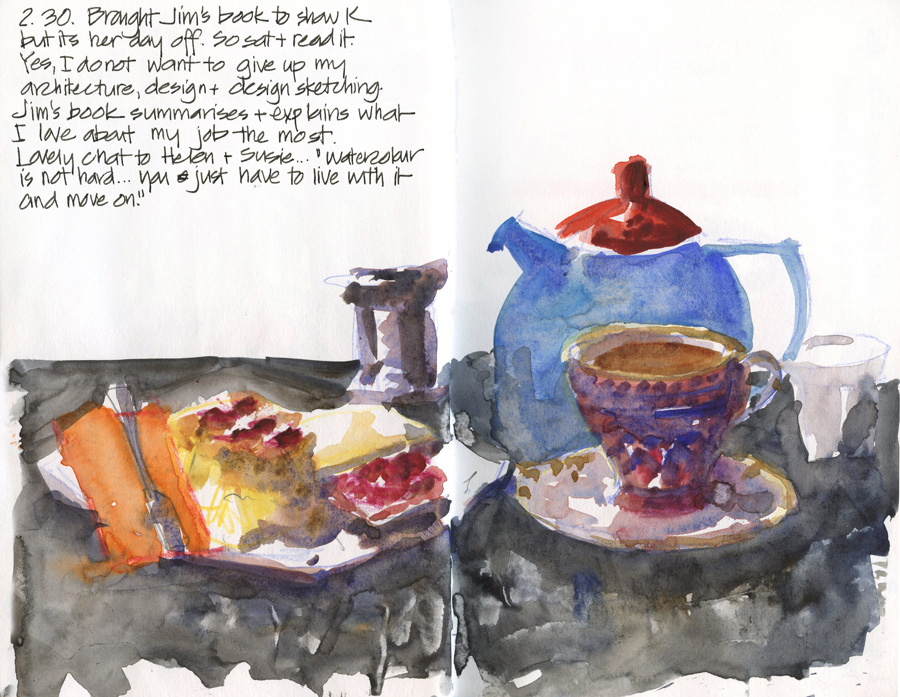 2.30. Brought Jim's book to show K
but its her day off. So sat + read it.
Yes, I do not want to give up my
architecture, design + design sketching.
Jim's book summarises + explains what
I love about my job the most.
Lovely chat to Helen + Susie... "watercolour
is not hard... you just have to live with it
and move on."